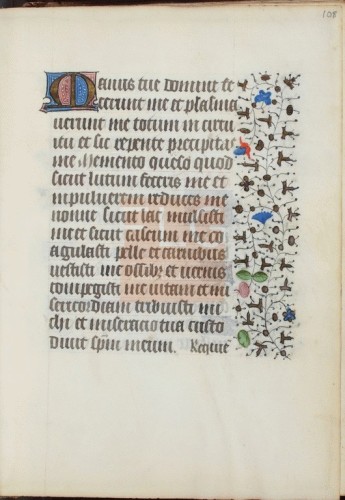 108
Manus tue domine fe
cerunt me et plasma
uerunt me totum in circu
itu et sic repente precipitas
me Memento queso quod
sicut lutum feceris me et
in puluerem reduces me
nonne sicut lac mulsisti
me et sicut caseum me co
agulasti pelle et carnibus
uestisti me ossibz et neruis
compegisti me uitam et mi
sericordiam tribuisti mi
chi et uisitacio tua custo
diuit spm meum. Requie